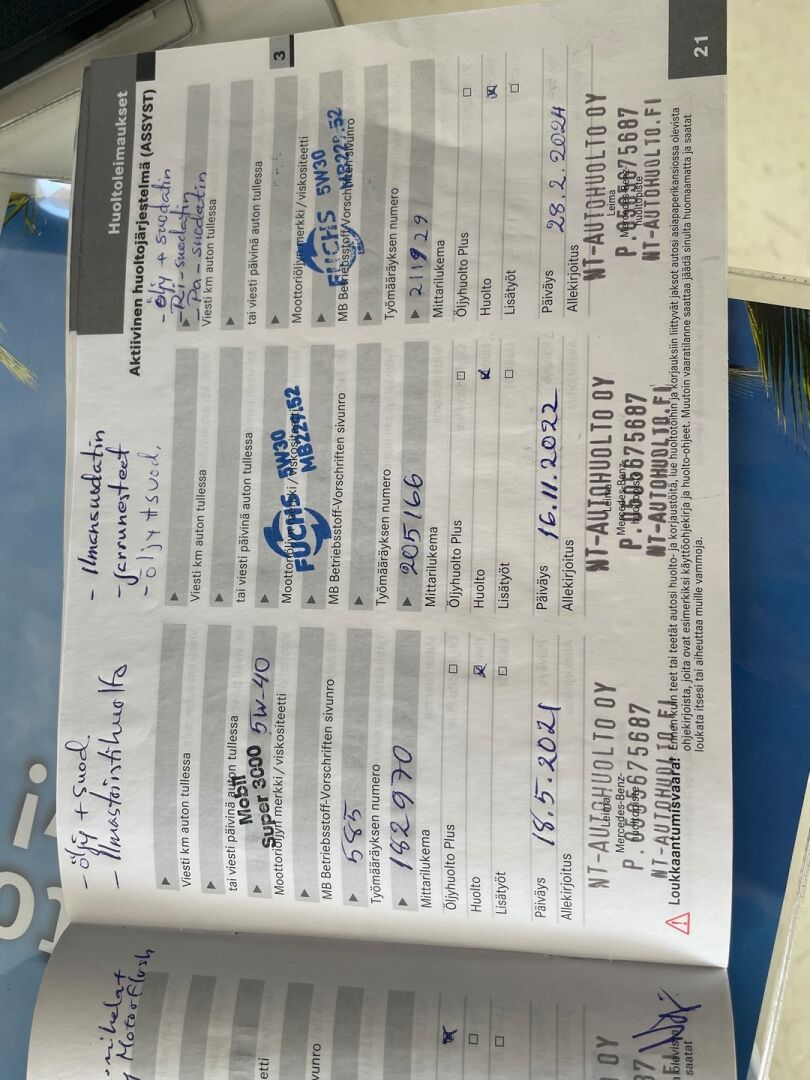 Huoltoleimaukset
Aktiivinen huoltojärjestelmä (ASSYST)
3
- Öljy + suod.
- Ilmastointihuolto
Viesti km auton tullessa
tai viesti päivinä auton tullessa
Mobil
Super 3000 5W-40
Moottoriöljyn merkki / viskositeetti
MB Betriebsstoff-Vorschriften sivunro
585
Työmääräyksen numero
182970
Mittarilukema
Öljyhuolto Plus
Huolto
Lisätyöt
Päiväys 18.5.2021
Allekirjoitus
NT-AUTOHUOLTO OY
Leima
Mercedes-Benz-
huoltopiste
P. 0505675687
NT-AUTOHUOLTO.FI
- Ilmansuodatin
- Jarrunesteet
- Öljy + suod.
Viesti km auton tullessa
tai viesti päivinä auton tullessa
FUCHS 5W30
MB229.52
Moottoriöljyn merkki / viskositeetti
MB Betriebsstoff-Vorschriften sivunro
Työmääräyksen numero
205166
Mittarilukema
Öljyhuolto Plus
Huolto
Lisätyöt
Päiväys 16.11.2022
Allekirjoitus
NT-AUTOHUOLTO OY
Leima
Mercedes-Benz-
huoltopiste
P. 0505675687
NT-AUTOHUOLTO.FI
- Öljy + suodatin
- Ri-suodatin
- Pa-suodatin
Viesti km auton tullessa
tai viesti päivinä auton tullessa
Moottoriöljyn merkki / viskositeetti
FUCHS 5W30
MB229.52
MB Betriebsstoff-Vorschriften sivunro
Työmääräyksen numero
211929
Mittarilukema
Öljyhuolto Plus
Huolto
Lisätyöt
Päiväys 28.2.2024
Allekirjoitus
NT-AUTOHUOLTO OY
Leima
Mercedes-Benz-
huoltopiste
P. 0505675687
NT-AUTOHUOLTO.FI
Loukkaantumisvaara! Ennen kuin teet tai teetät autosi huolto- ja korjaustöitä, lue huoltotöihin ja korjauksiin liittyvät jaksot autosi asiapaperikansiossa olevista
ohjekirjoista, joita ovat esimerkiksi käyttöohjekirja ja huolto-ohjeet. Muutoin vaaratilanne saattaa jäädä sinulta huomaamatta ja saatat
loukata itsesi tai aiheuttaa muille vammoja.
21
Motorflush
etti
vunro
OY
olevista
saatat